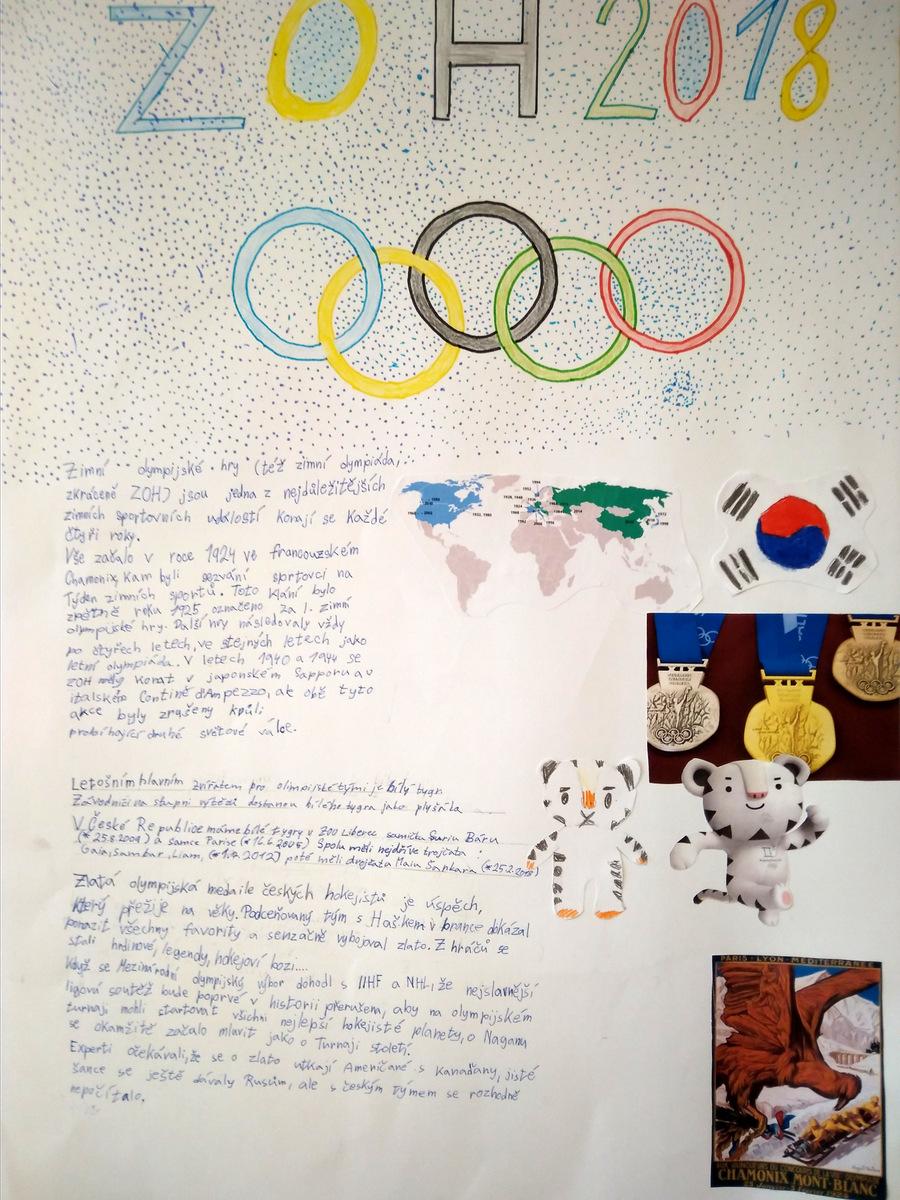 ZOH 2018
Zimní olympijské hry (též zimní olympiáda,
zkráceně ZOH) jsou jedna z nejdůležitějších
zimních sportovních událostí konají se každé
čtyři roky.
Vše začalo v roce 1924 ve francouzském
Chamonix, kam byli sezváni sportovci na
Týden zimních sportů. Toto klání bylo
zpětně roku 1925 označeno za 1. zimní
olympijské hry. Další hry následovaly vždy
po čtyřech letech, ve stejných letech jako
letní olympiáda. V letech 1940 a 1944 se
ZOH měly konat v japonském Sapporu a v
italském Contině d'Ampezzo, ale obě tyto
akce byly zrušeny kvůli
probíhající druhé světové válce.
Letošním hlavním zvířatem pro olimpijské týmí je bílý tygr.
Závodníci na stupni vítězů dostanou bílého tygra jako plyšáka
V České Republice máme bílé tygry v Zoo Liberec samičku Surju Báru
a samce Parise Spolu měli nejdříve trojčata:
Gaia, Sambar, Liam, poté měli dvojčata
Zlatá olympijská medaile českých hokejistů je úspěch,
který přežije na věky. Podceňovaný tým s Haškem v brance dokázal
porazit všechny favority a senzačně vybojoval zlato. Z hráčů se
stali hrdinové, legendy, hokejoví bozi....
Když se Mezinárodní olympijský výbor dohodl s IIHF a NHL, že nejslavnější
ligová soutěž bude poprvé v historii přerušena, aby na olympijském
turnaji mohli startovat všichni nejlepší hokejisté planety, o Naganu
se okamžitě začalo mluvit jako o Turnaji století.
Experti očekávali, že se o zlato utkají Američané s Kanaďany, jisté
šance se ještě dávaly Rusům, ale s českým týmem se rozhodně
nepočítalo.
PARIS-LYON-MEDITERRANEE
CHAMONIX MONT-BLANC